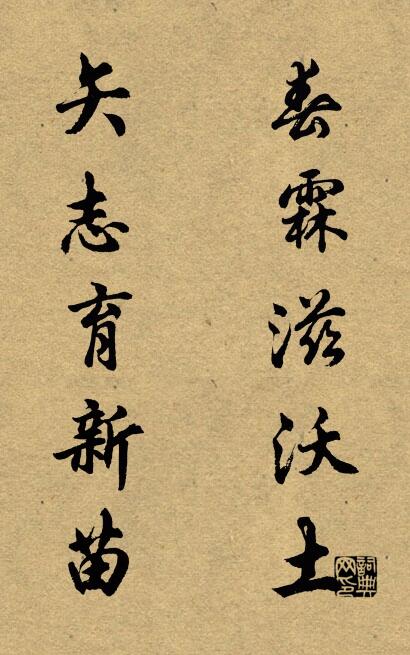 春霖滋沃土
矢志育新苗
詞典网